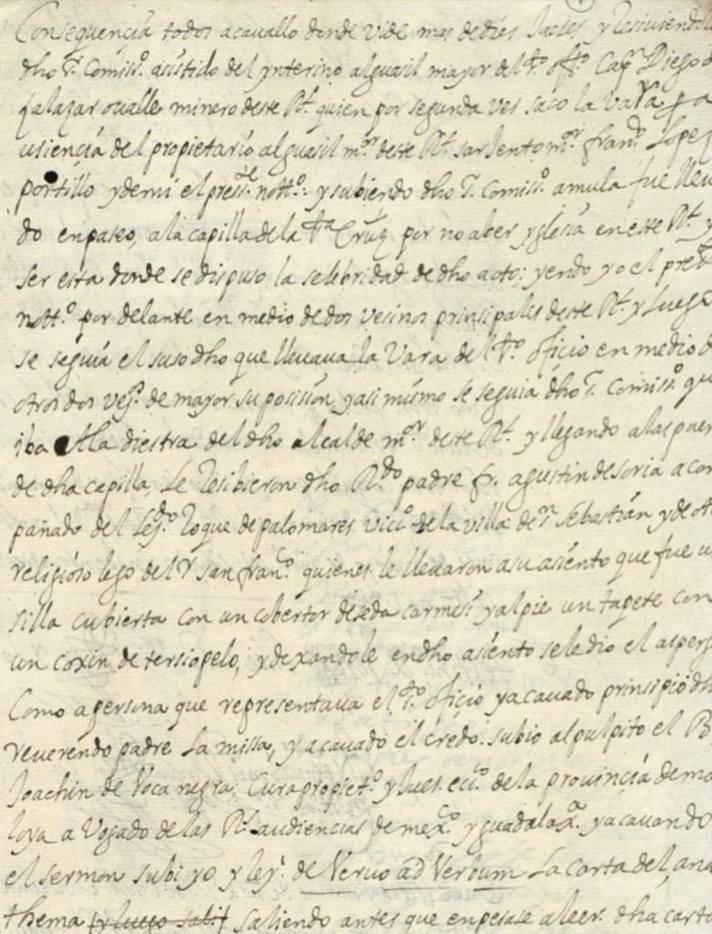 Consequencia todos acavallo donde vide mas dedies y Resiviendole
dho Sr. Comisso. asistido del ynterino alguasil mayor del Sto. offo. Capn Diego d
salazar ovalle minero deste Rl. quien por segunda ves saco la vara p a
usiencia del propietario alguasil mor. deste Rl. sarjento mor. frando Lopez
portillo ydemi el presste notto. y subiendo dho Sr. Comisso. amula fue lleua
do enpaseo, ala capilla dela Sta Cruz, por no aber yglesia en este Rl. y
ser esta donde se dispuso la selebridad de dho acto: yendo yo el preste
notto. por delante en medio de dos vesinos prinsipales deste Rl. y Luego
se seguia el suso dho que lleuaua la Vara del Sto. oficio en medio d
otros dos vesos. de mayor suposision, yasi mismo se seguia dho Sr. Comisso. qu
iba Ala diestra del dho alcalde mor deste Rl. y llegando alas puer
de dha capilla, Le Resibieron dho Rdo padre fr. agustin de soria acom
pañado del Lejdo. Roque de palomares vicio. de la villa de Sn Sebastián y de ot
religioso lego del Sr san frano. quienes le lleuaron asu asiento que fue u
silla cubierta con un cobertor de seda carmesi yalpie un tapete con
un coxin de tersiopelo, y dexandole endho asiento seledio el asperg
Como apersona que representaua el Sto. oficio yacauado prinsipio dh
reuerendo padre La missa, y acauado el credo. subio alpulpito el B
Joachin de Voca negra, Cura propieto. y Jues. ecco. de la provincia de ma
loya a Vogado de las Rs. audiencias de mexco. y guadalaxa. yacauando
el sermon subi yo y ley. de Vervo ad Verbum La carta del, ana
thema (y luego sali) saliendo antes que enpesase aleer. dha carta